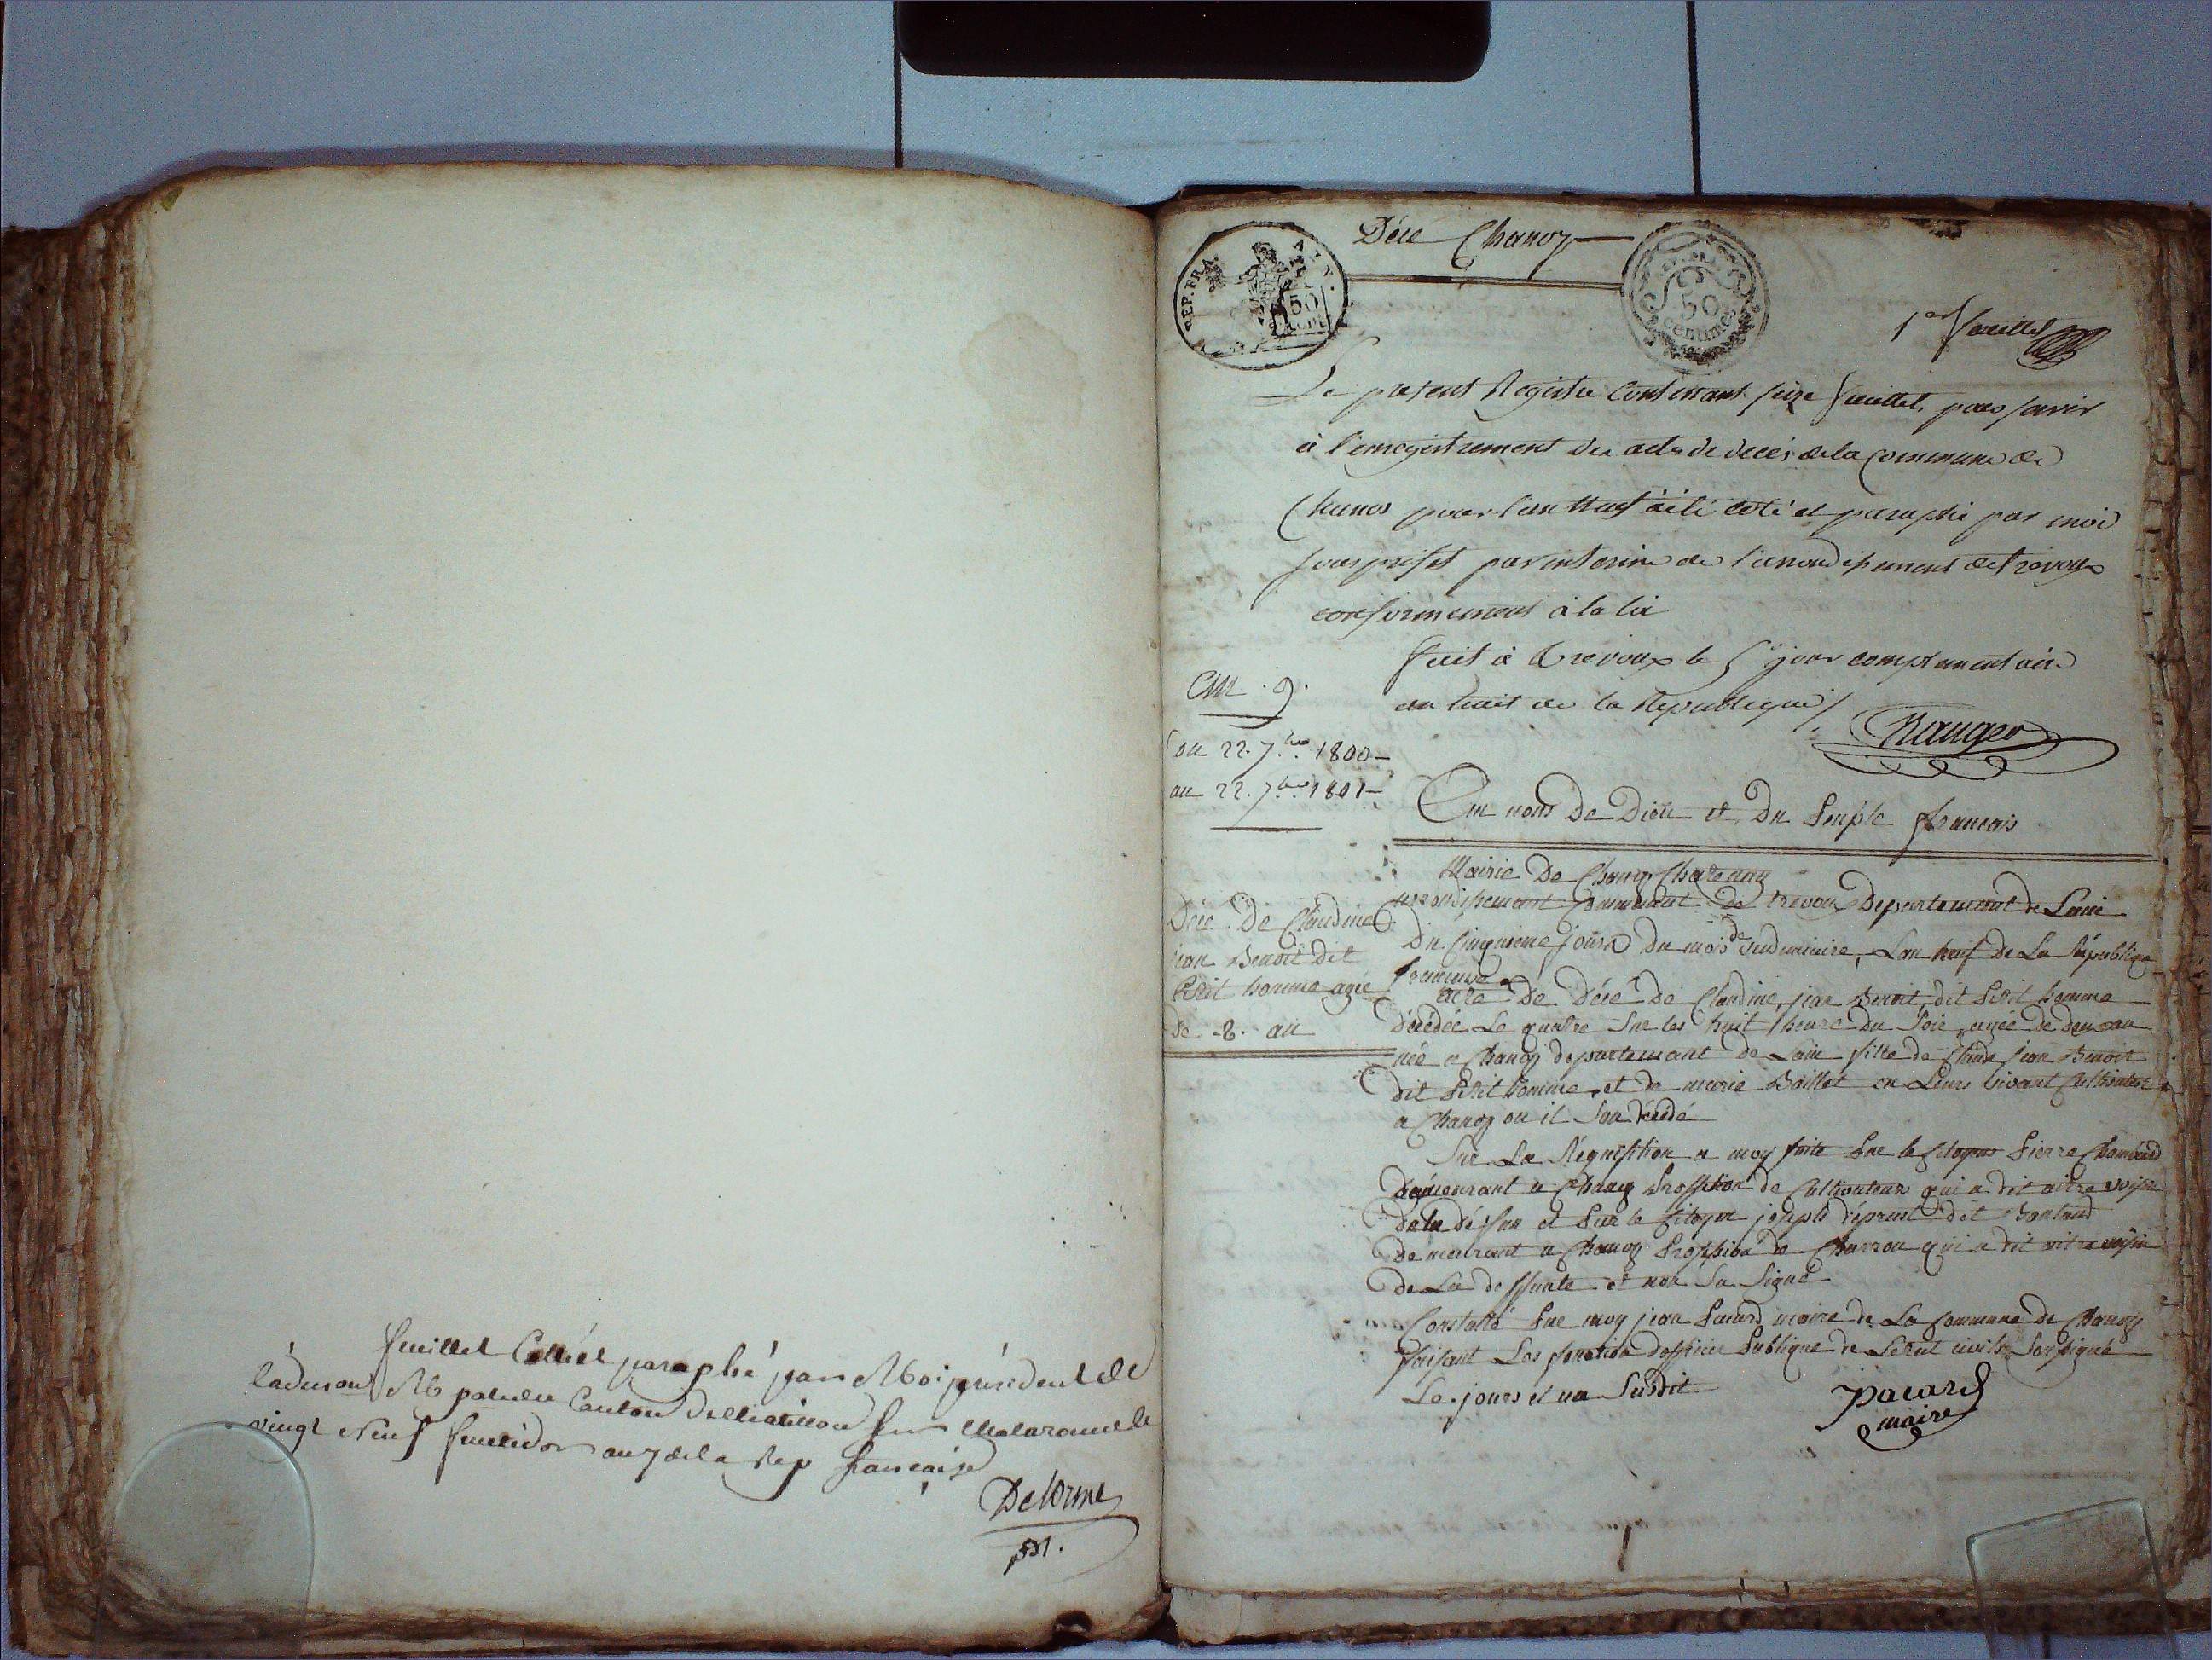 feuillet Cotté et paraphé par Moi président de
l'adm on M pale du Canton de Chatillon sur Chalaronne le
vingt Neuf fructidor an 7 de la Rep française
Delorme
pdt.
Décé Chanoz
REP. FRA.
50
cent
REP. FRA.
50
centimes
1er feuillet
Le present Registre contenant seize feuillets pour servir
à l'enregistrement des actes de deces de la commune de
Chanos pour l'an neuf a été coté et paraphé par moi
sous prefet par interim de l'arrondissement de trevoux
conformement à la loi
fait à trevoux le 5e jour complementaire
an huit de la Republique
An .9.
du 22. 7bre 1800 —
au 22. 7bre 1801 —
Au nom De Dieu et Du Peuple francais
Mairie De Chanoz Chatenay
arrondisement Communal De trevoux Departement de Lain
Décé De Claudine
jean Benoit dit
Petit homme agée
de -2- an
Du Cinquieme jours Du mois de vendemiaire, Lan neuf de La Républiqe
francaise
acte De Décé De Claudine jean Benoit dit Petit homme
décédée Le quatre Sur les huit heure du Soir agée De deux an
née a Chanoz departemant de Lain fille de Claude jean Benoit
dit Petit homme et de marie Baillet en Leurs vivant Cultivateur
a Chanoz ou il Son décédé
Sur La Réquisition a moy faite Par le Citoyen Pierre Chambard
Demeurant a Chanoz Proffetion de Cultivateur qui a dit aitre voisin
de la défun et Par le Citoyen joseph dit
Demeurant a Chanoz Proffesion de Charron qui a dit aitre voisin
de La deffunte et non Su Signé
Constaté Par moy jean Pacard maire de La Commune de Chanoz
faisant Les fonction dofficier Publique de Letat civil Sousigné
Le jours et an Susdit
J pacard
maire